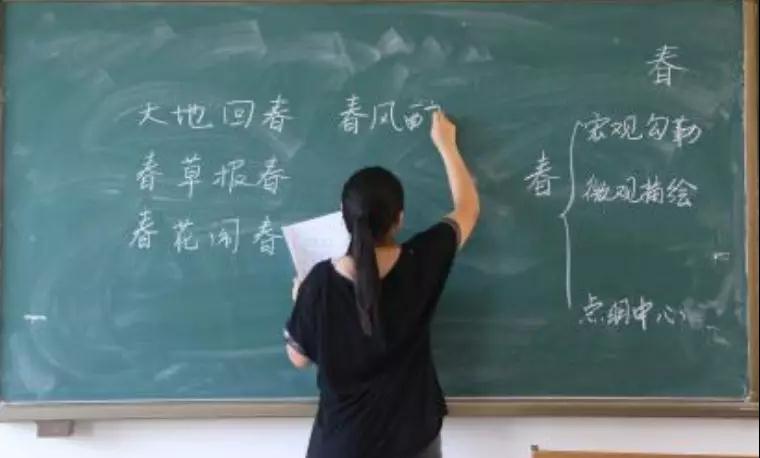 春
大地回春 春风
春草报春
春花闹春
春
宏观勾勒
微观描绘
点明中心